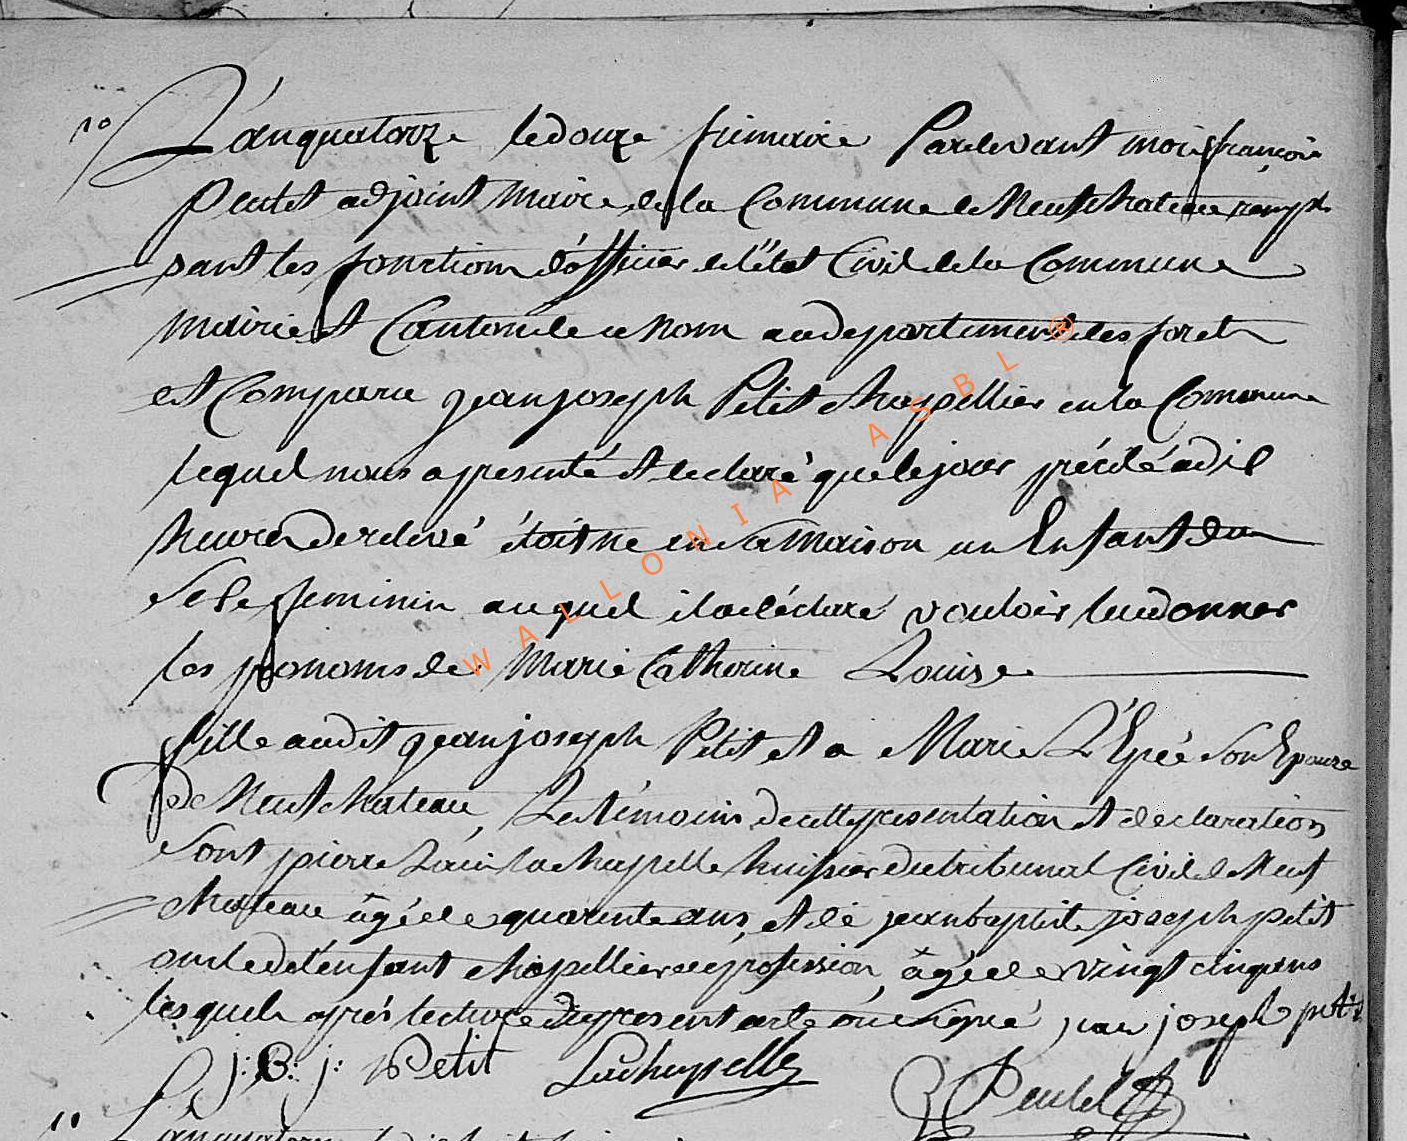 10
L'an quatorze le douze frimaire Pardevant moi françois
adjoint Maire de la Commune de Neufchateau remplis
sant les fonctions d'officier de l'état Civil de la Commune
Mairie et Canton de ce Nom au departement des forets
est Comparu jean joseph Petit chapellier en la Commune
lequel nous a presenté et declaré que le jour précité a dil
heures de relevé étoit né en sa Maison un Enfant du
sexe feminin auquel il a déclaré vouloir lui donner
les prenoms de Marie Catherine Louise
fille audit jean joseph Petit et a Marie L'Epée son Epouze
De Neufchateau, Les témoins de cette presentation et declaration
sont pierre Louis lachapelle huissier du tribunal Civil de Neuf
chateau âgé de quarente ans, et de jean baptiste joseph petit
oncle de l'enfant chapellier de profession, âgé de vingt cinq ans
lesquels aprés lecture du present acte ont signé jean joseph petit
j: B: j: Petit Lachapelle
11 L'an quatorze
WALLONIA ASBL ®